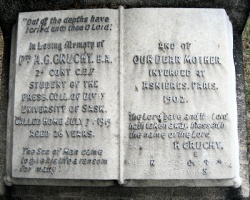 "Out of the depths have
I cried unto thee O Lord."
In Loving Memory of
A.G. GRUCHY. B.A.
2ND CONT C.E.F.
STUDENT OF THE
PRESB. COLL. OF DIV.
UNIVERSITY OF SASK.
CALLED HOME JULY
AGED 26 YEARS.
The Son of Man came
to give his life a ransom
for many
AND OF
OUR DEAR MOTHER
INTERRED AT
ASNIERES. PARIS.
1902.
The Lord gave and the Lord
hath taken away. Blessed be
the name of the Lord
GRUCHY.